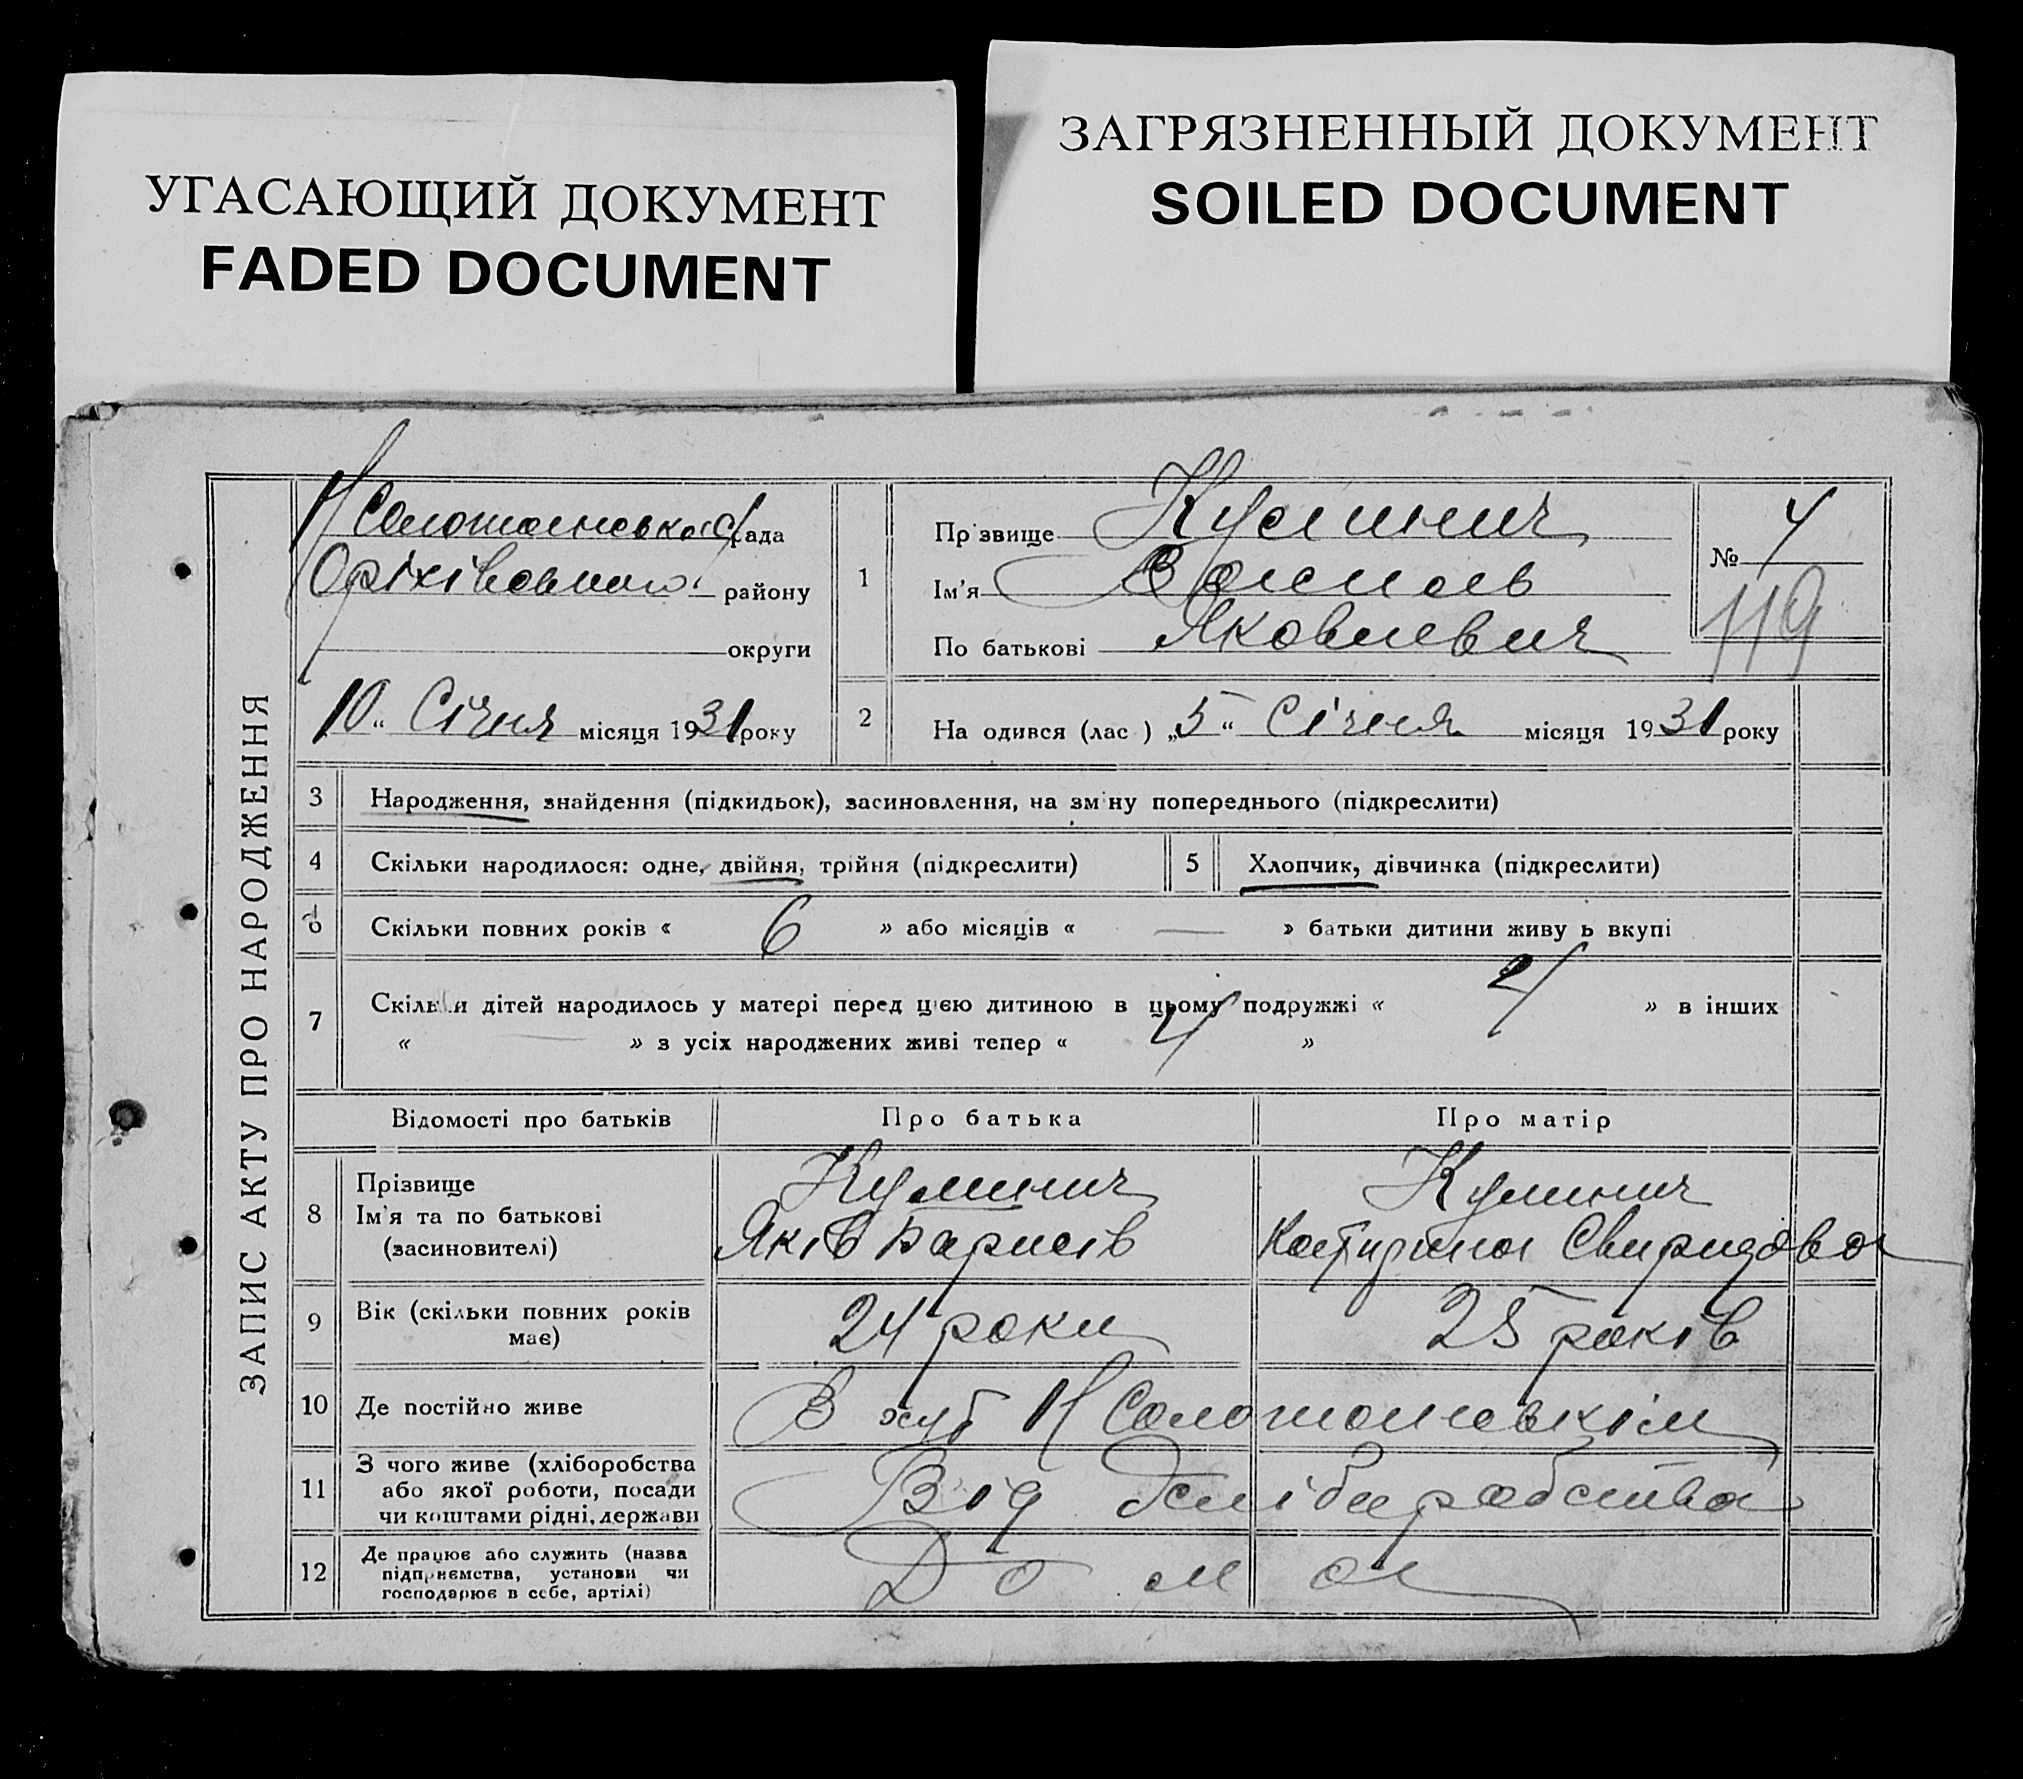 УГАСАЮЩИЙ ДОКУМЕНТ
FADED DOCUMENT
ЗАГРЯЗНЕННЫЙ ДОКУМЕНТ
SOILED DOCUMENT
ЗАПИС АКТУ ПРО НАРОДЖЕННЯ
рада
району
округи
10 „ Січня місяця 1931 року
1
Пр звище Кулинич
Ім'я Василь
По батькові Яковлевич
№ 4
119
2 На одився (лас ) „ 5 “ Січня місяця 1931 року
3 Народження, знайдення (підкидьок), засиновлення, на зм ну попереднього (підкреслити)
4 Скільки народилося: одне, двійня, трійня (підкреслити)
5 Хлопчик, дівчинка (підкреслити)
6 Скільки повних років « 6 » або місяців « — » батьки дитини живу ь вкупі
7 Скільки дітей народилось у матері перед цією дитиною в цьому подружжі « 4 » в інших
« — » з усіх народжених живі тепер « 4 »
Відомості про батьків Про батька Про матір
8 Прізвище
Ім'я та по батькові
(засиновителі)
Кулинич
Яків
Кулинич
Катирина Свиридова
9 Вік (скільки повних років
має)
24 роки
25 років
10 Де постійно живе В хут Н Солошонськім
11 З чого живе (хліборобства
або якої роботи, посади
чи коштами рідні, держави
Від хліборобства
12 Де працює або служить (назва
підприємства, установи чи
господарює в себе, артілі)
Дома